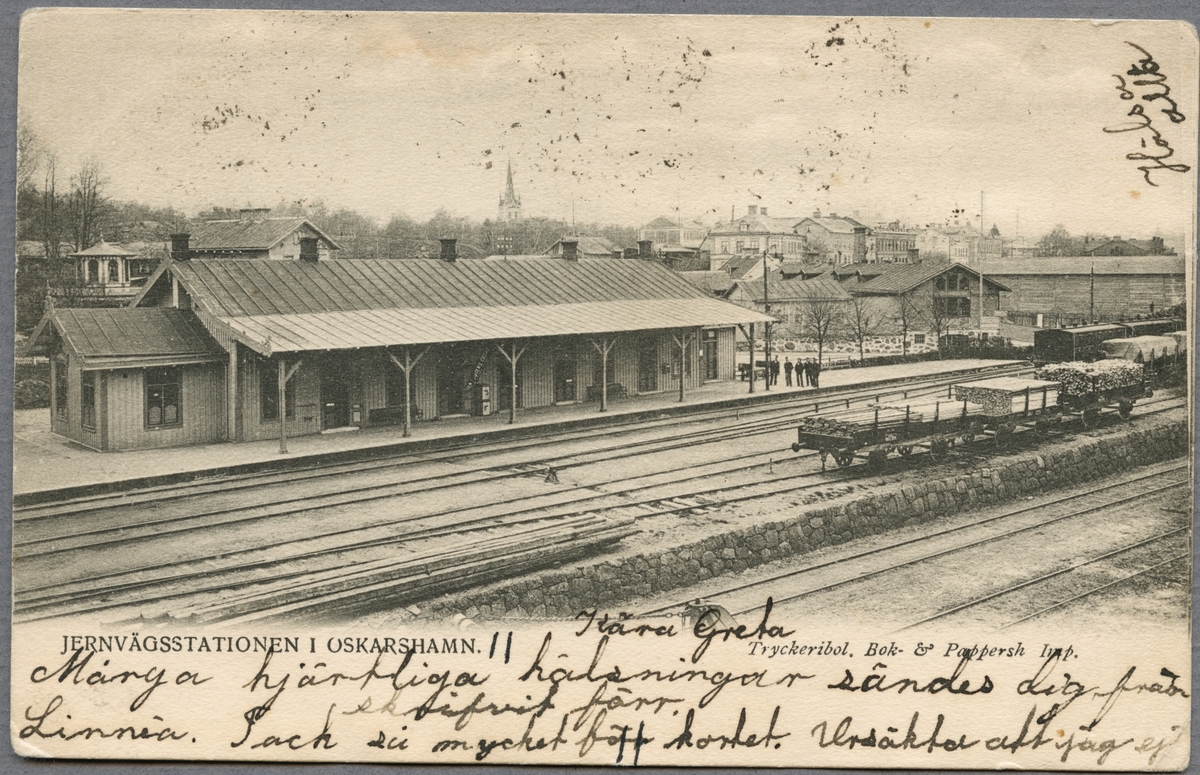 Hälsa alla
JERNVÄGSSTATIONEN I OSKARSHAMN. 11
Kära Greta
Tryckeribol. Bok- & Pappersh Imp.
Många hjärtliga hälsningar sändes dig från
skrifvit förr.
Linnéa. Tack så mycket för kortet. Ursäkta att jag ej